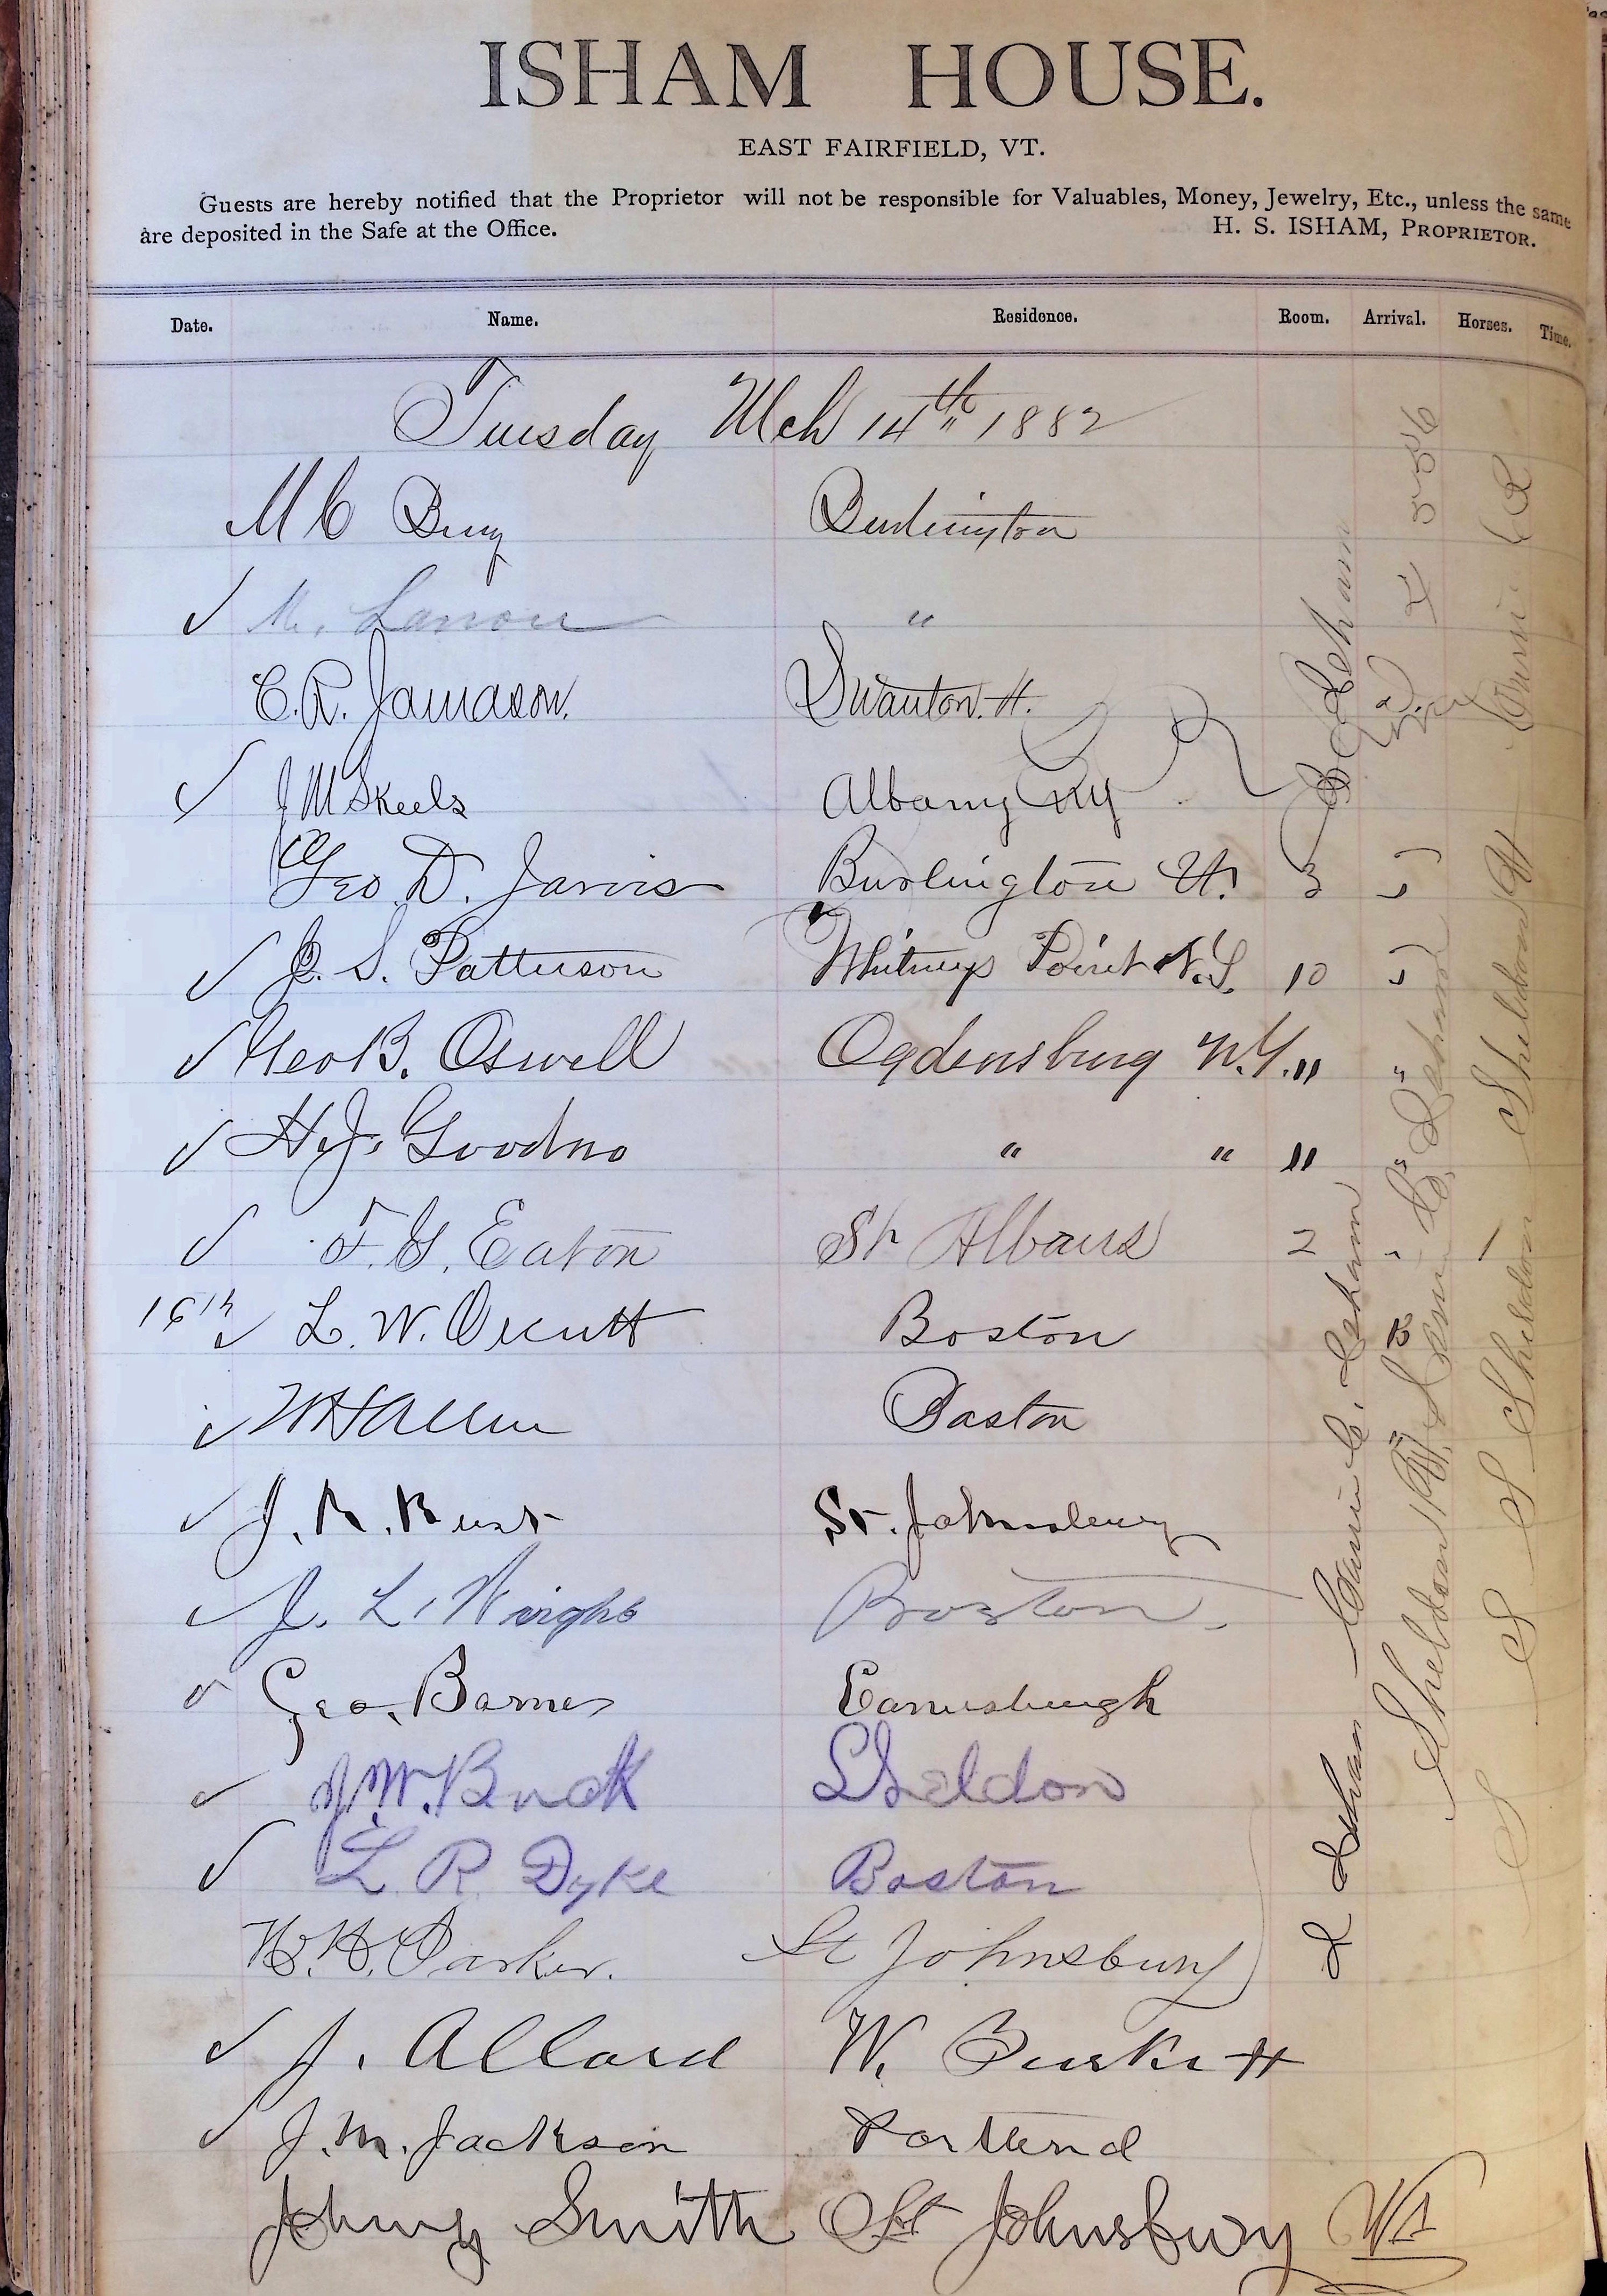 ISHAM HOUSE.
EAST FAIRFIELD, VT.
Guests are hereby notified that the Proprietor will not be responsible for Valuables, Money, Jewelry, Etc., unless the same
are deposited in the Safe at the Office. H. S. ISHAM, PROPRIETOR.
Date. Name. Residence. Room. Arrival. Horses. Time.
Tuesday Mch 14th 1882
M C Burlington
✓ "
C. R. Jamason. Swanton. Vt.
✓ J M Skeels Albany NY
Geo D. Jarvis Burlington Vt. 3 5
✓ S. Patterson Whitneys Point N.Y. 10 5
✓ Geo B. Oswell Ogdensburg N.Y. " "
✓ H. J. Goodno " " " "
✓ F. G. Eaton St Albans 2 " 1
✓ L. W. Orcutt Boston B
✓ W H Allen Boston "
✓ J. R. St. Johnsbury
✓ J. L. Wright Boston.
✓ Geo. Barnes
✓ J. W. Buck Sheldon
✓ L. R. Dyke Boston
W. H. Parker. St Johnsbury
✓ J. Allard W.
✓ J. M. Jackson
Johny Smith St Johnsbury Vt
I Isham Carrie C. Isham
Sheldon Vt. Isham
S S S Sheldon Sheldon Vt